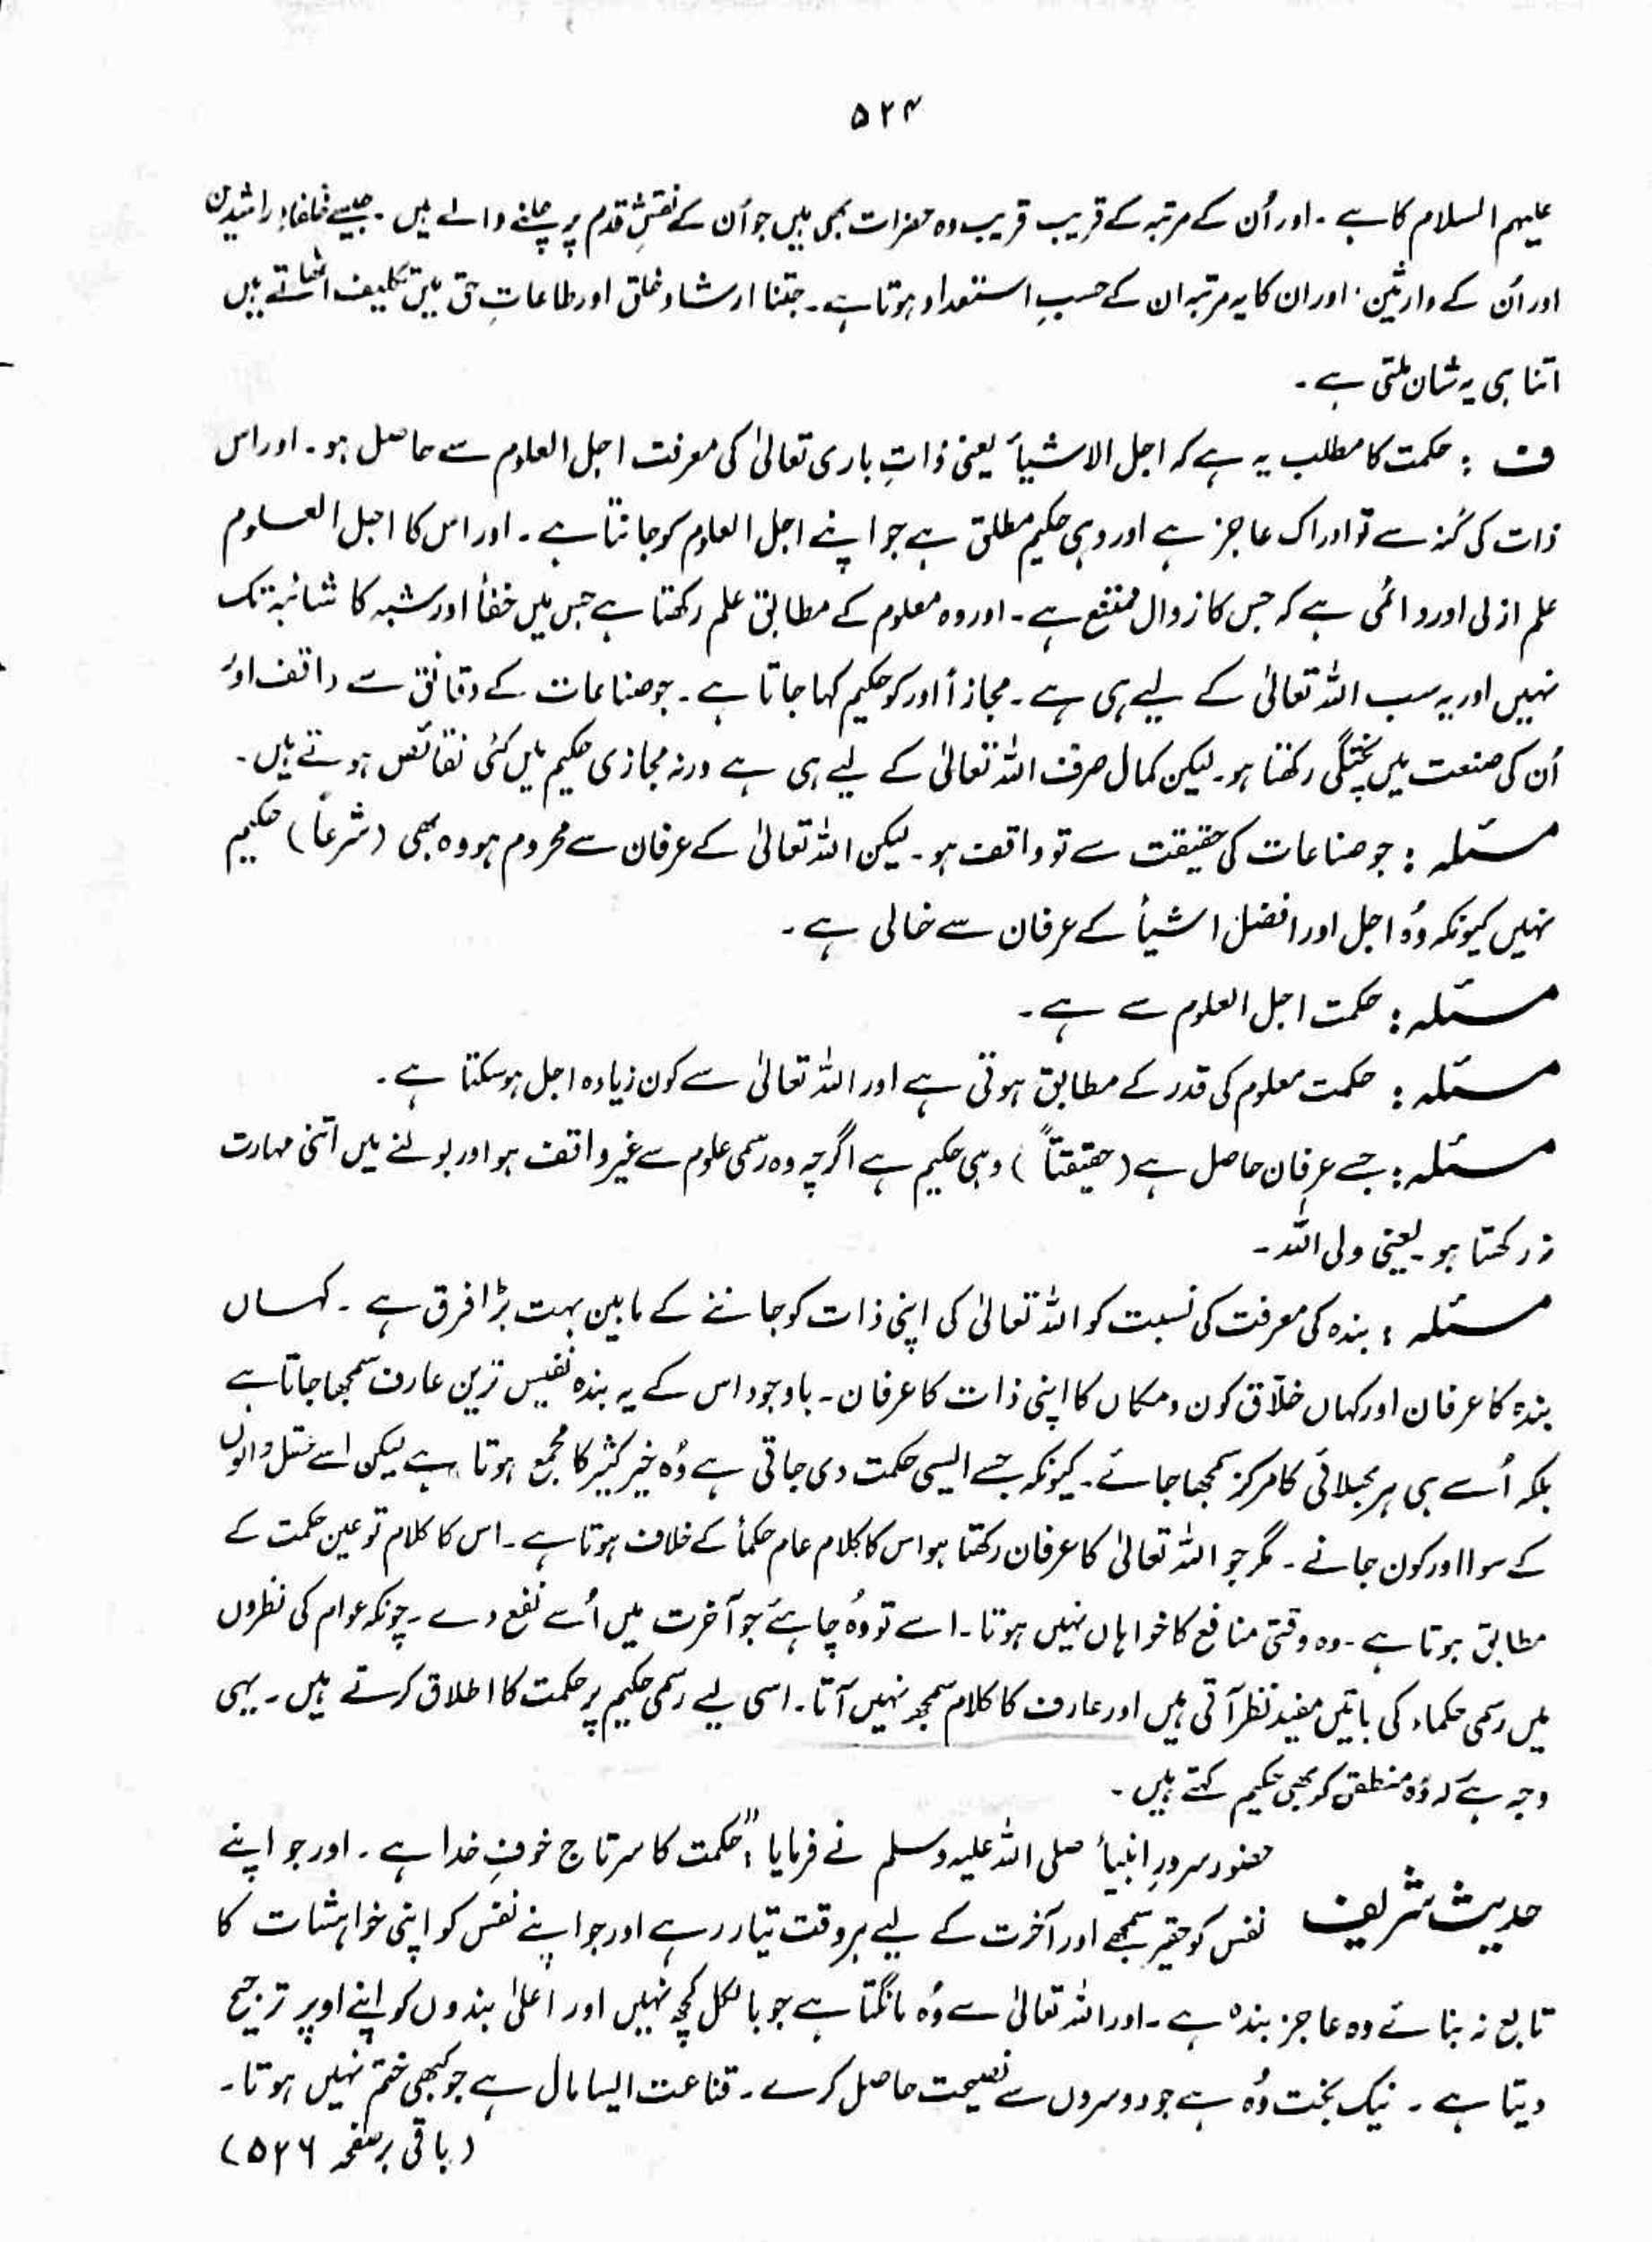 ۵۲۴
علیہم السلام کا ہے ۔ اور اُن کے مرتبہ کے قریب قریب وہ حضرات بھی ہیں جو اُن کے نقشِ قدم پر چلنے والے ہیں ۔ جیسے خلفاءِ راشدین
اور اُن کے وارثین ۔ اور ان کا یہ مرتبہ ان کے حسبِ استعداد ہوتا ہے ۔ جتنا ارشادِ خلق اور طاعاتِ حق میں تکلیف اٹھاتے ہیں
اتنا ہی یہ شان ملتی ہے ۔
ف : حکمت کا مطلب یہ ہے کہ اجل الاشیأ یعنی ذاتِ باری تعالیٰ کی معرفت اجل العلوم سے حاصل ہو ۔ اور اس
ذات کی کُنہ سے تو ادراک عاجز ہے اور وہی حکیم مطلق ہے جو اپنے اجل العلوم کو جانتا ہے ۔ اور اس کا اجل العلوم
علم ازلی اور دائمی ہے کہ جس کا زوال ممتنع ہے ۔ اور وہ معلوم کے مطابق علم رکھتا ہے جس میں خفأ اور شبہ کا شائبہ تک
نہیں اور یہ سب اللہ تعالیٰ کے لیے ہی ہے ۔ مجازاً اور کو حکیم کہا جاتا ہے ۔ جو صناعات کے دقائق سے واقف اور
اُن کی صنعت میں پختگی رکھتا ہو ۔ لیکن کمال صرف اللہ تعالیٰ کے لیے ہی ہے ورنہ مجازی حکیم میں کئی نقائص ہوتے ہیں ۔
مسئلہ : جو صناعات کی حقیقت سے تو واقف ہو ۔ لیکن اللہ تعالیٰ کے عرفان سے محروم ہو وہ بھی (شرعاً) حکیم
نہیں کیونکہ وُہ اجل اور افضل اشیأ کے عرفان سے خالی ہے ۔
مسئلہ : حکمت اجل العلوم سے ہے ۔
مسئلہ : حکمت معلوم کی قدر کے مطابق ہوتی ہے اور اللہ تعالیٰ سے کون زیادہ اجل ہوسکتا ہے ۔
مسئلہ : جسے عرفان حاصل ہے (حقیقتاً) وہی حکیم ہے اگرچہ وہ رسمی علوم سے غیر واقف ہو اور بولنے میں اتنی مہارت
نہ رکھتا ہو ۔ یعنی ولی اللہ ۔
مسئلہ : بندہ کی معرفت کی نسبت کو اللہ تعالیٰ کی اپنی ذات کو جاننے کے مابین بہت بڑا فرق ہے ۔ کہاں
بندہ کا عرفان اور کہاں خلّاق کون و مکاں کا اپنی ذات کا عرفان ۔ باوجود اس کے یہ بندہ نفیس ترین عارف سمجھا جاتا ہے
بلکہ اُسے ہی ہر بھلائی کا مرکز سمجھا جائے ۔ کیونکہ جسے ایسی حکمت دی جاتی ہے وُہ خیر کثیر کا مجمع ہوتا ہے لیکن اسے عقل والوں
کے سوا اور کون جانے ۔ مگر جو اللہ تعالیٰ کا عرفان رکھتا ہو اس کا کلام عام حکمأ کے خلاف ہوتا ہے ۔ اس کا کلام تو عین حکمت کے
مطابق ہوتا ہے ۔ وہ وقتی منافع کا خواہاں نہیں ہوتا ۔ اسے تو وُہ چاہئے جو آخرت میں اُسے نفع دے ۔ چونکہ عوام کی نظروں
میں رسمی حکماء کی باتیں مفید نظر آتی ہیں اور عارف کا کلام سمجھ نہیں آتا ۔ اسی لیے رسمی حکیم پر حکمت کا اطلاق کرتے ہیں ۔ یہی
وجہ ہے کہ وُہ منطقی کو بھی حکیم کہتے ہیں ۔
حضور سرورِ انبیأ صلی اللہ علیہ وسلم نے فرمایا : "حکمت کا سرتاج خوفِ خدا ہے ۔ اور جو اپنے
حدیث شریف نفس کو حقیر سمجھے اور آخرت کے لیے ہر وقت تیار رہے اور جو اپنے نفس کو اپنی خواہشات کا
تابع نہ بنائے وہ عاجز بندہ ہے ۔ اور اللہ تعالیٰ سے وُہ مانگتا ہے جو بالکل کچھ نہیں اور اعلیٰ بندوں کو اپنے اوپر ترجیح
دیتا ہے ۔ نیک بخت وُہ ہے جو دوسروں سے نصیحت حاصل کرے ۔ قناعت ایسا مال ہے جو کبھی ختم نہیں ہوتا ۔
(باقی بر صفحہ ۵۲۶)